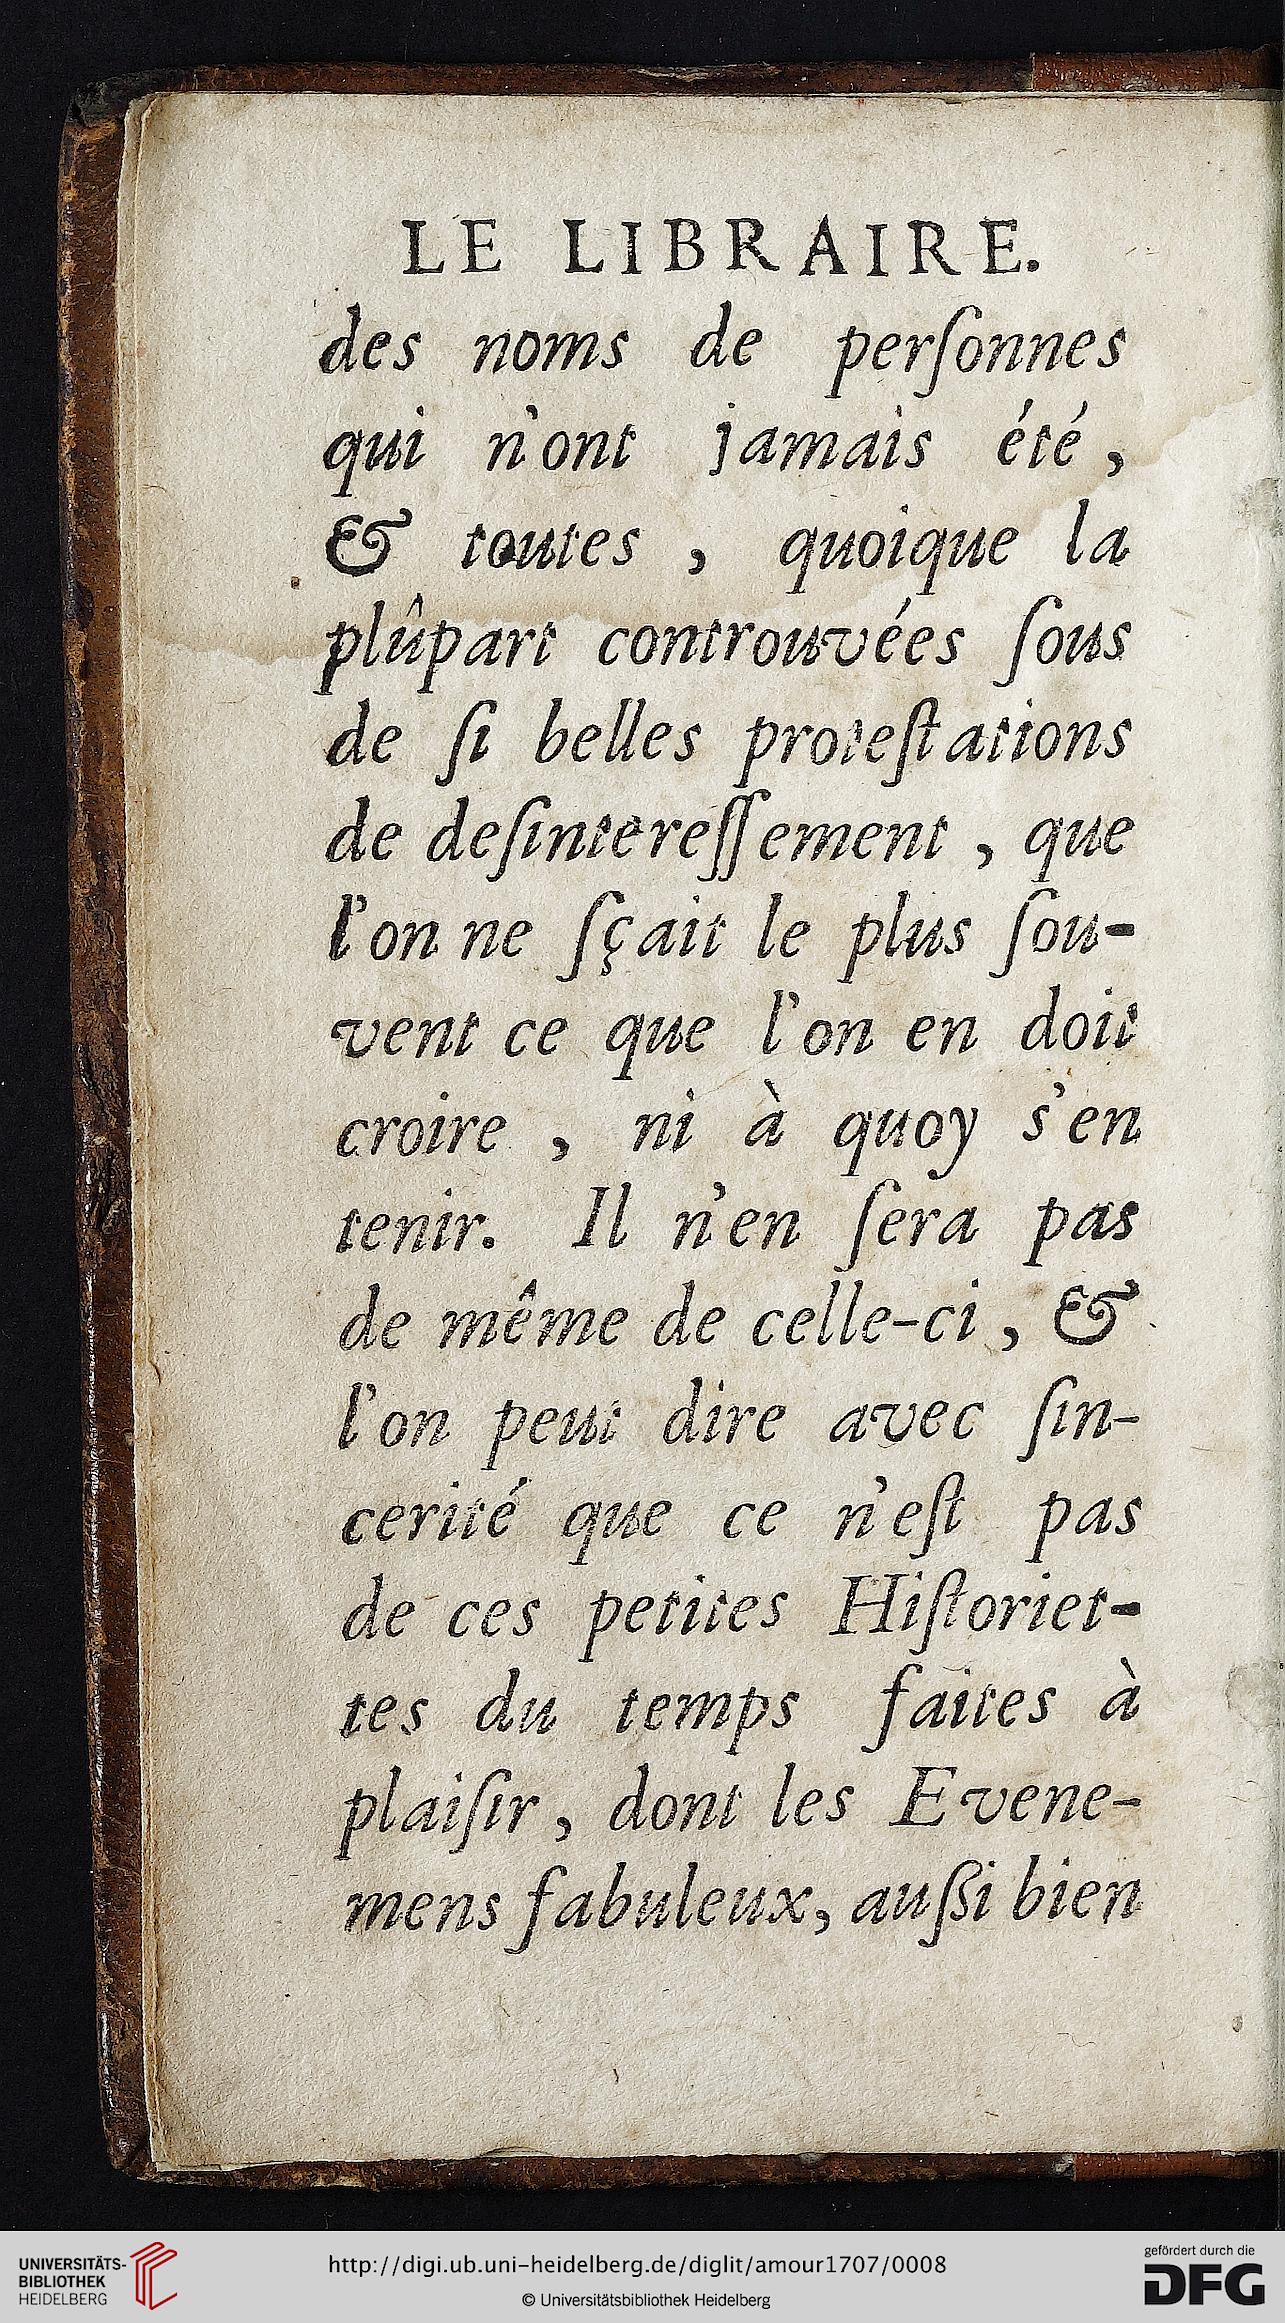 LE LIBRAIRE.
des noms de perſonnes
qui n'ont jamais été,
& toutes, quoique la
plûpart controuvées ſous
de ſi belles proteſtations
de deſintereſſement, que
l'on ne ſçait le plus ſou-
vent ce que l'on en doit
croire, ni à quoy s'en
tenir. Il n'en ſera pas
de même de celle-ci, &
l'on peut dire avec ſin-
cerité que ce n'eſt pas
de ces petites Hiſtoriet-
tes du temps faites à
plaiſir, dont les Evene-
mens fabuleux, auſſi bien
UNIVERSITÄTS-
BIBLIOTHEK
HEIDELBERG
http://digi.ub.uni-heidelberg.de/diglit/amour1707/0008
© Universitätsbibliothek Heidelberg
gefördert durch die
DFG